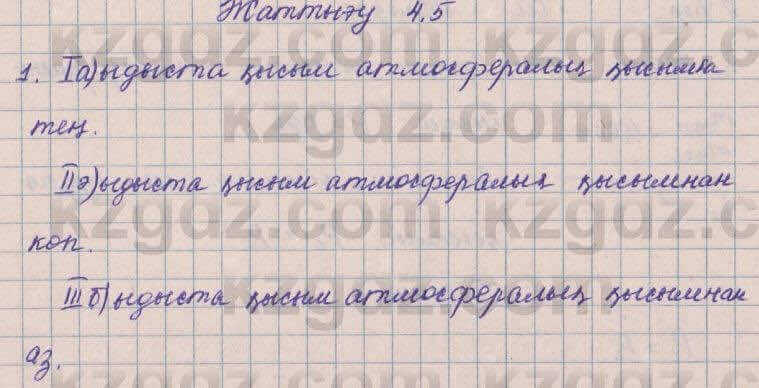 Жаттығу 4.5
1. I а) ыдыста қысым атмосфералық қысымға
тең.
II ә) ыдыста қысым атмосфералық қысымнан
көп.
III б) ыдыста қысым атмосфералық қысымнан
аз.
kzgdz.com kzgdz.com
kzgdz.com
kzgdz.com kzgdz.com
kzgdz.com
kzgdz.com kzgdz.com